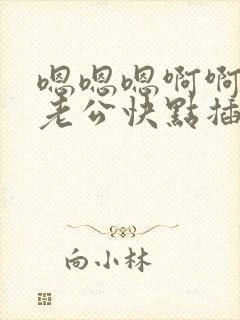 嗯嗯嗯啊啊
老公快點插
向小林